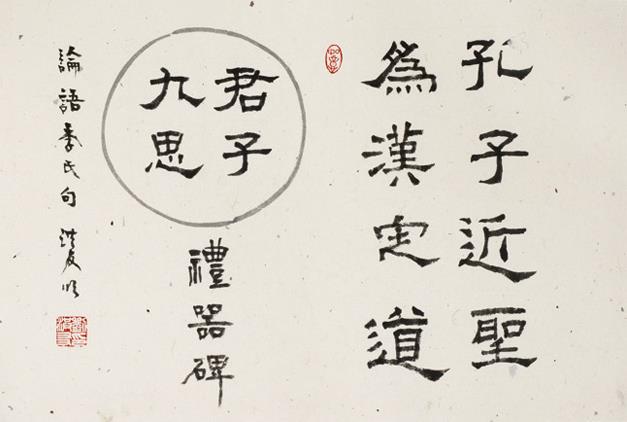 孔子近聖
爲漢定道
君子
九思
禮器碑
論語季氏句 洪友